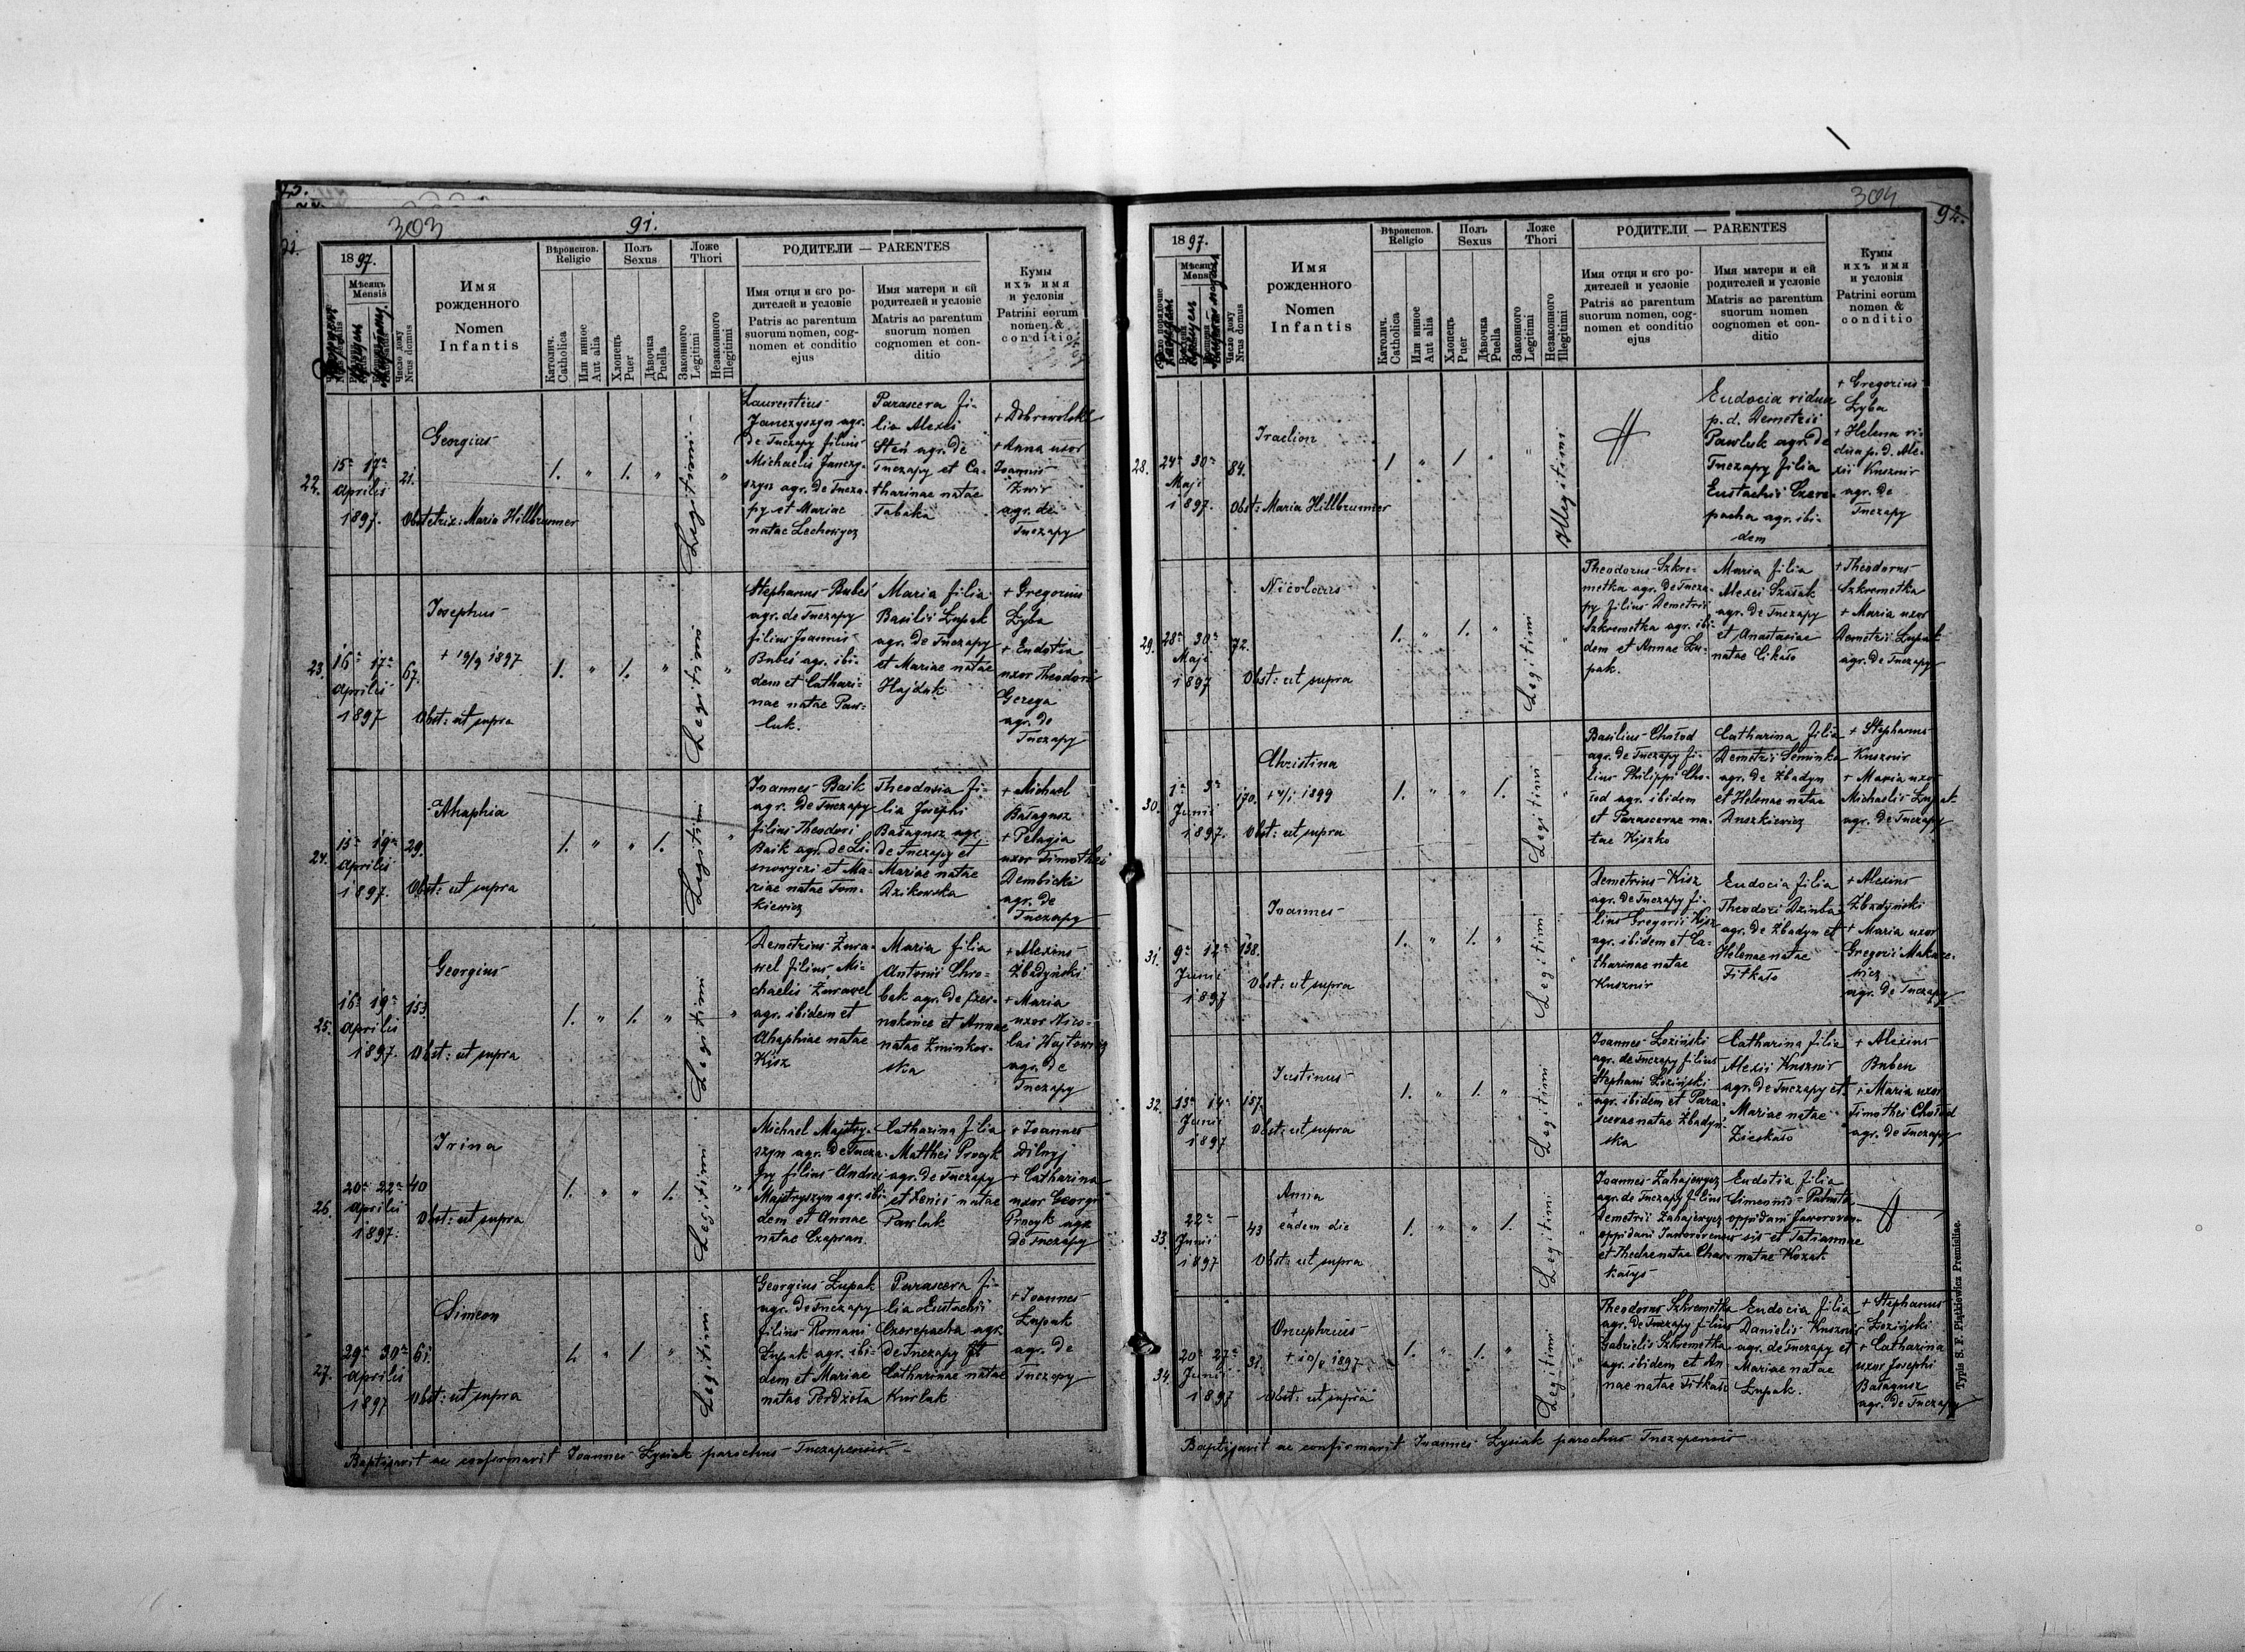 303
91.
1897.
Мѣсяцъ
Mensis
Число дому
Nrus domus
Имя
рожденного
Nomen
Infantis
Вѣроисповѣд.
Religio
Католич.
Catholica
Или инное
Aut alia
Полъ
Sexus
Хлопець
Puer
Дѣвочка
Puella
Ложе
Thori
Законного
Legitimi
Незаконного
Illegitimi
РОДИТЕЛИ — PARENTES
Имя отца и его ро-
дителей и условіе
Patris ac parentum
suorum nomen, cog-
nomen et conditio
ejus
Имя матери и ей
родителей и условіе
Matris ac parentum
suorum nomen
cognomen et con-
ditio
Кумы
ихъ имя
и условія
Patrini eorum
nomen &
conditio
22.
15a 17a
Aprilis
1897.
21.
Georgius
Obstetrix: Maria Hillbrunner
1. " 1. "
Legitimi
"
Laurentius
Janczyszyn agr.
de Tuczapy filius
Michaelis Janczy-
szyn agr. de Tucza-
py et Mariae
natae Lechowycz
Parascera fi-
lia Alexei
Steń agr. de
Tuczapy et Ca-
tharinae natae
Tabaka
+ Anna uxor
Joannis
Zwir
agr. de
Tuczapy
23.
16a 17a
Aprilis
1897
67.
Josephus
+ 19/9 1897
Obst: ut supra
1. " 1. "
Legitimi
"
Stephanus Bubeś
agr. de Tuczapy
filius Joannis
Bubeś agr. ibi-
dem et Cathari-
nae natae Paw-
luk.
Maria filia
Basilii Łupak
agr. de Tuczapy
et Mariae natae
Hajduk
+ Gregorius
Łyba
+ Eudotia
uxor Theodori
Gerega
agr. de
Tuczapy
24.
15a 19a
Aprilis
1897.
29.
Ahaphia
Obst: ut supra
1. " " 1.
Legitimi
"
Joannes Baik
agr. de Tuczapy
filius Theodori
Baik agr. de Li-
snowyczi et Ma-
riae natae Tom-
kiewicz
Theodosia fi-
lia Josephi
Bałagusz agr.
de Tuczapy et
Mariae natae
Dzikowska
+ Michael
Bałagusz
+ Pelagia
uxor Timothei
Dembicki
agr. de
Tuczapy
25.
16a 19a
Aprilis
1897.
153.
Georgius
Obst: ut supra
1. " 1. "
Legitimi
"
Demetrius Żura-
wel filius Mi-
chaelis Żurawel
agr. ibidem et
Ahaphiae natae
Kisz
Maria filia
Antonii Chro-
bak agr. de Czer-
nokońce et Annae
natae Zminkow-
ska
+ Alexius
Zbadyński
+ Maria
uxor Nico-
lai Wojtowicz
agr. de
Tuczapy
26.
20a 22a
Aprilis
1897.
40
Irina
Obst: ut supra
1. " " 1.
Legitimi
"
Michael Majstry-
szyn agr. de Tucza-
py filius Andrei
Majstryszyn agr. ibi-
dem et Annae
natae Czapran.
Catharina filia
Matthei Procyk
agr. de Tuczapy
et Xenis natae
Pawluk
+ Joannes
Dilnyj
+ Catharina
uxor Georgii
Procyk agr.
de Tuczapy
27.
29a 30a
Aprilis
1897
61.
Simeon
Obst: ut supra
1. " 1. "
Legitimi
Georgius Łupak
agr. de Tuczapy
filius Romani
Łupak agr. ibi-
dem et Mariae
natae Perdżoła
Parascera fi-
lia Eustachii
Czerepacha agr.
de Tuczapy et
Catharinae natae
Kurlak
+ Joannes
Łupak
agr. de
Tuczapy
Baptizavit ac confirmavit Joannes Łysiak parochus Tuczapensis
304
92.
1897.
Мѣсяцъ
Mensis
Число дому
Nrus domus
Имя
рожденного
Nomen
Infantis
Вѣроисповѣд.
Religio
Католич.
Catholica
Или инное
Aut alia
Полъ
Sexus
Хлопець
Puer
Дѣвочка
Puella
Ложе
Thori
Законного
Legitimi
Незаконного
Illegitimi
РОДИТЕЛИ — PARENTES
Имя отца и его ро-
дителей и условіе
Patris ac parentum
suorum nomen, cog-
nomen et conditio
ejus
Имя матери и ей
родителей и условіе
Matris ac parentum
suorum nomen
cognomen et con-
ditio
Кумы
ихъ имя
и условія
Patrini eorum
nomen &
conditio
28.
24a 30a
Maji
1897.
84.
Iraelion
Obst: Maria Hillbrunner
1 " 1 "
"
Illegitimi
Eudocia vidua
p. d. Demetrii
Pawluk agr. de
Tuczapy filia
Eustachii Czere-
pacha agr. ibi-
dem
+ Gregorius
Łyba
+ Helena vi-
dua p. d. Ale-
xii Kusznir
agr. de
Tuczapy
29.
28a 30a
Maji
1897
72.
Nicolaus
Obst: ut supra
1. " 1. "
Legitimi
"
Theodorus Szkre-
metka agr. de Tucza-
py filius Demetrii
Szkremetka agr. ibi-
dem et Annae Łu-
pak.
Maria filia
Alexei Szaśak
agr. de Tuczapy
et Anastasiae
natae Cikało
+ Theodorus
Szkremetka
+ Maria uxor
Demetrii Łupak
agr. de Tuczapy
30.
1a 3a
Junii
1897.
170.
Christina
+ 4/1 1899
Obst: ut supra
1. " " 1.
Legitimi
"
Basilius Chołod
agr. de Tuczapy fi-
lius Philippi Cho-
łod agr. ibidem
et Parascevae na-
tae Kiszko
Catharina filia
Demetrii Seminka
agr. de Zbadyn
et Helenae natae
Duszkiewicz
+ Stephanus
Kusznir
+ Maria uxor
Michaelis Łupak
agr. de Tuczapy
31.
9a 12a
Junii
1897
138.
Joannes
Obst: ut supra
1. " 1. "
Legitimi
"
Demetrius Kisz
agr. de Tuczapy fi-
lius Gregorii Kisz
agr. ibidem et Ca-
tharinae natae
Kusznir
Eudocia filia
Theodori Dziuba
agr. de Zbadyn et
Helenae natae
Fitkało
+ Alexius
Zbadyński
+ Maria uxor
Gregorii Makare-
wicz
agr. de Tuczapy
32.
13a 14a
Junii
1897
157.
Justinus
Obst: ut supra
1. " 1. "
Legitimi
"
Joannes Łoziński
agr. de Tuczapy filius
Stephani Łoziński
agr. ibidem et Para-
scevae natae Zbadyń-
ska
Catharina filia
Alexii Kusznir
agr. de Tuczapy et
Mariae natae
Zieskało
+ Alexius
Buben
+ Maria uxor
Timothei Chołod
agr. de Tuczapy
33.
22a —
Junii
1897
43
Anna
+
eadem die
Obst: ut supra
1. " " 1.
Legitimi
"
Joannes Zahajewycz
agr. de Tuczapy filius
Demetrii Zahajewycz
oppidani Javoroven-
et Theclae natae Char-
kałys
Eudotia filia
Simeonis
oppidani Javoroven-
sis et Tatiannae
natae Kozak
34
20a 27a
Junii
1897
31.
Onuphrius
+ 10/8 1897
Obst: ut supra
1. " 1. "
Legitimi
"
Theodorus Szkremetka
agr. de Tuczapy filius
Gabrielis Szkremetka
agr. ibidem et An-
nae natae Fitkało
Eudocia filia
Danielis Kusznir
agr. de Tuczapy et
Mariae natae
Łupak.
+ Stephanus
Łoziński
+ Catharina
uxor Josephi
Bałagusz
agr. de Tuczapy
Baptizavit ac confirmavit Joannes Łysiak parochus Tuczapensis
Typis S. F. Piątkiewicz Premisliae.